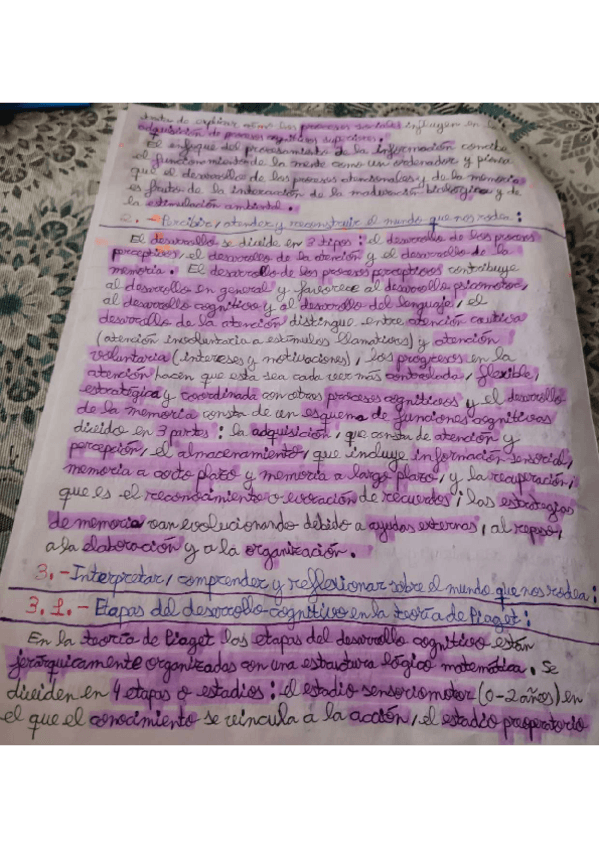 trata de explicar cómo los procesos sociales influyen en la
adquisición de procesos cognitivos superiores.
El enfoque del procesamiento de la información concibe
el funcionamiento de la mente como un ordenador y piensa
que el desarrollo de los procesos atencionales y de la memoria
es fruto de la interacción de la maduración biológica y de
la estimulación ambiental.
2.- Percibir, atender y reconstruir el mundo que nos rodea:
El desarrollo se divide en 3 tipos: el desarrollo de los procesos
perceptivos, el desarrollo de la atención y el desarrollo de la
memoria. El desarrollo de los procesos perceptivos contribuye
al desarrollo en general y favorece al desarrollo psicomotor,
al desarrollo cognitivo y al desarrollo del lenguaje, el
desarrollo de la atención distingue entre atención cautiva
(atención involuntaria a estímulos llamativos) y atención
voluntaria (intereses y motivaciones), los progresos en la
atención hacen que esta sea cada vez más controlada, flexible,
estratégica y coordinada con otros procesos cognitivos y el desarrollo
de la memoria consta de un esquema de funciones cognitivas
divido en 3 partes: la adquisición, que consta de atención y
percepción, el almacenamiento, que incluye información sensorial,
memoria a corto plazo y memoria a largo plazo, y la recuperación,
que es el reconocimiento o evocación de recuerdos, las estrategias
de memoria van evolucionando debido a ayudas externas, al repaso,
a la elaboración y a la organización.
3.- Interpretar, comprender y reflexionar sobre el mundo que nos rodea:
3.1.- Etapas del desarrollo cognitivo en la teoría de Piaget:
En la teoría de Piaget las etapas del desarrollo cognitivo están
jerárquicamente organizadas con una estructura lógico matemática. Se
dividen en 4 etapas o estadios: el estadio sensoriomotor (0-2 años) en
el que el conocimiento se vincula a la acción, el estadio preoperatorio